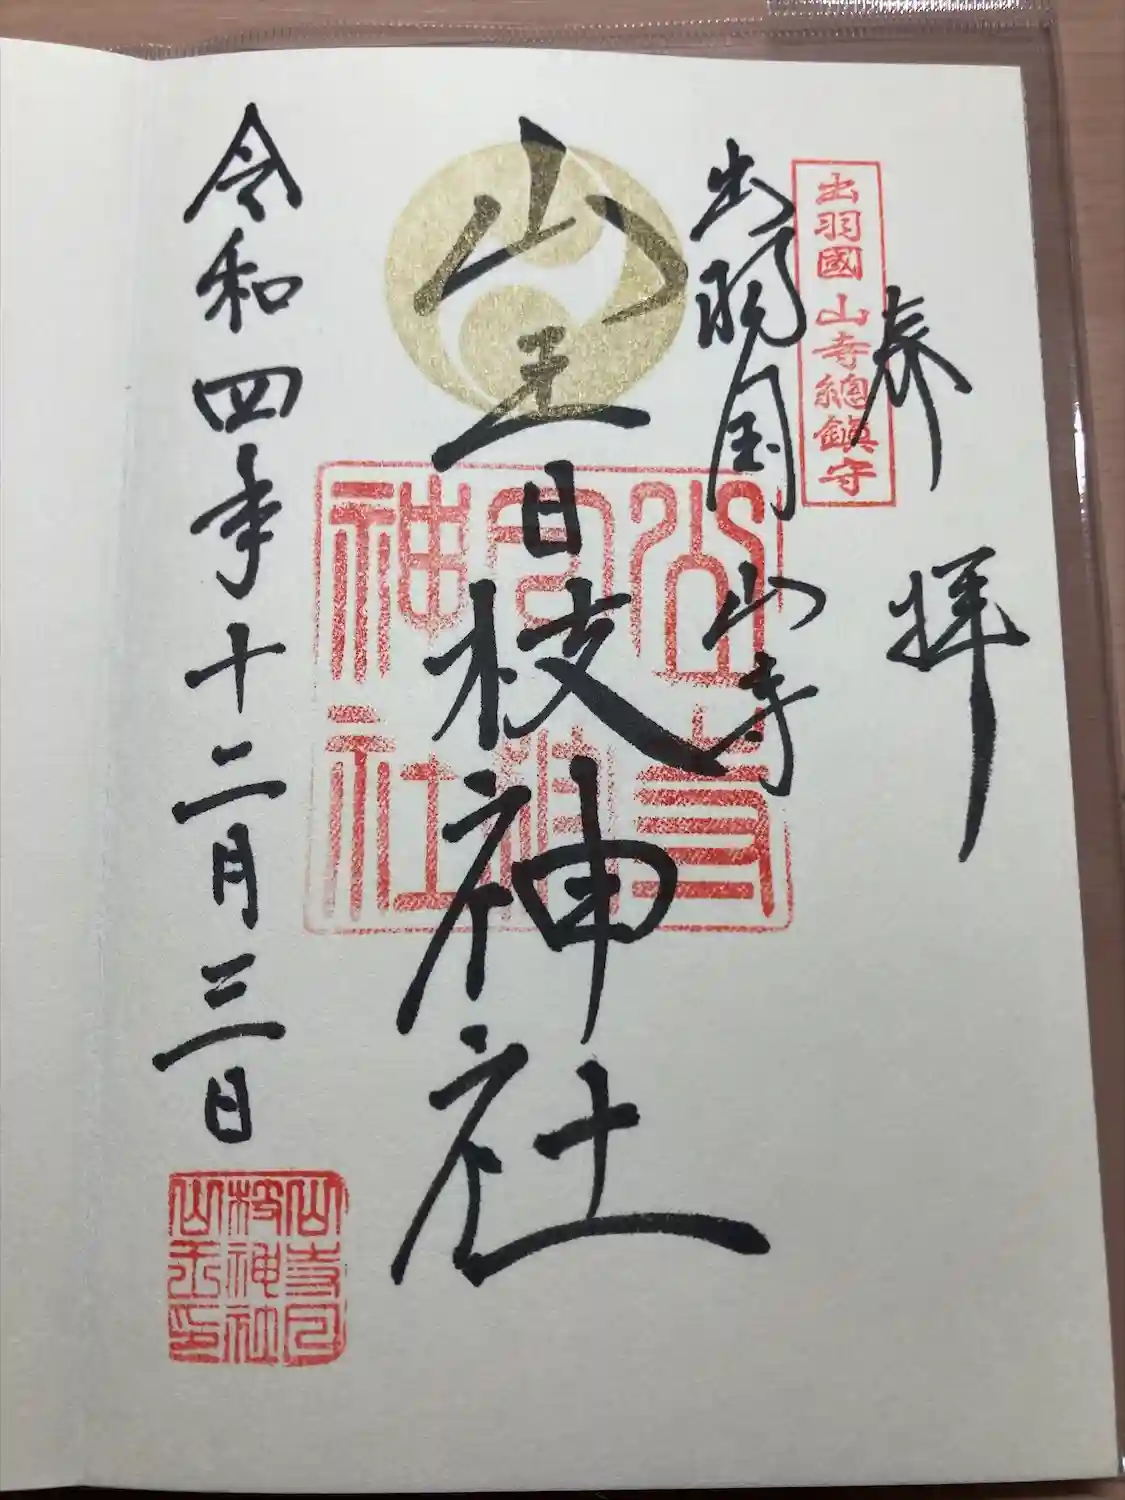 奉拝
出羽國山寺總鎮守
出羽国山寺
山王日枝神社
山寺
日枝
神社
令和四年十二月三日
山寺日
枝神社
山王印